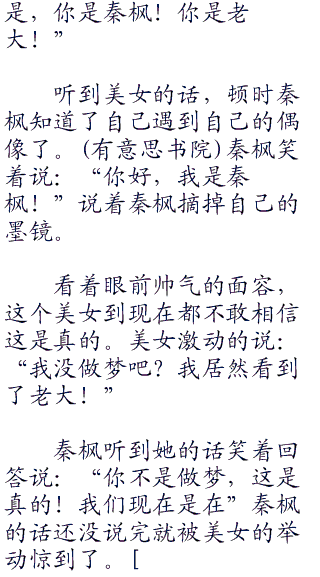 是，你是秦枫！你是老
大！”
听到美女的话，顿时秦
枫知道了自己遇到自己的偶
像了。(有意思书院)秦枫笑
着说：“你好，我是秦
枫！”说着秦枫摘掉自己的
墨镜。
看着眼前帅气的面容，
这个美女到现在都不敢相信
这是真的。美女激动的说：
“我没做梦吧？我居然看到
了老大！”
秦枫听到她的话笑着回
答说：“你不是做梦，这是
真的！我们现在是在”秦枫
的话还没说完就被美女的举
动惊到了。[